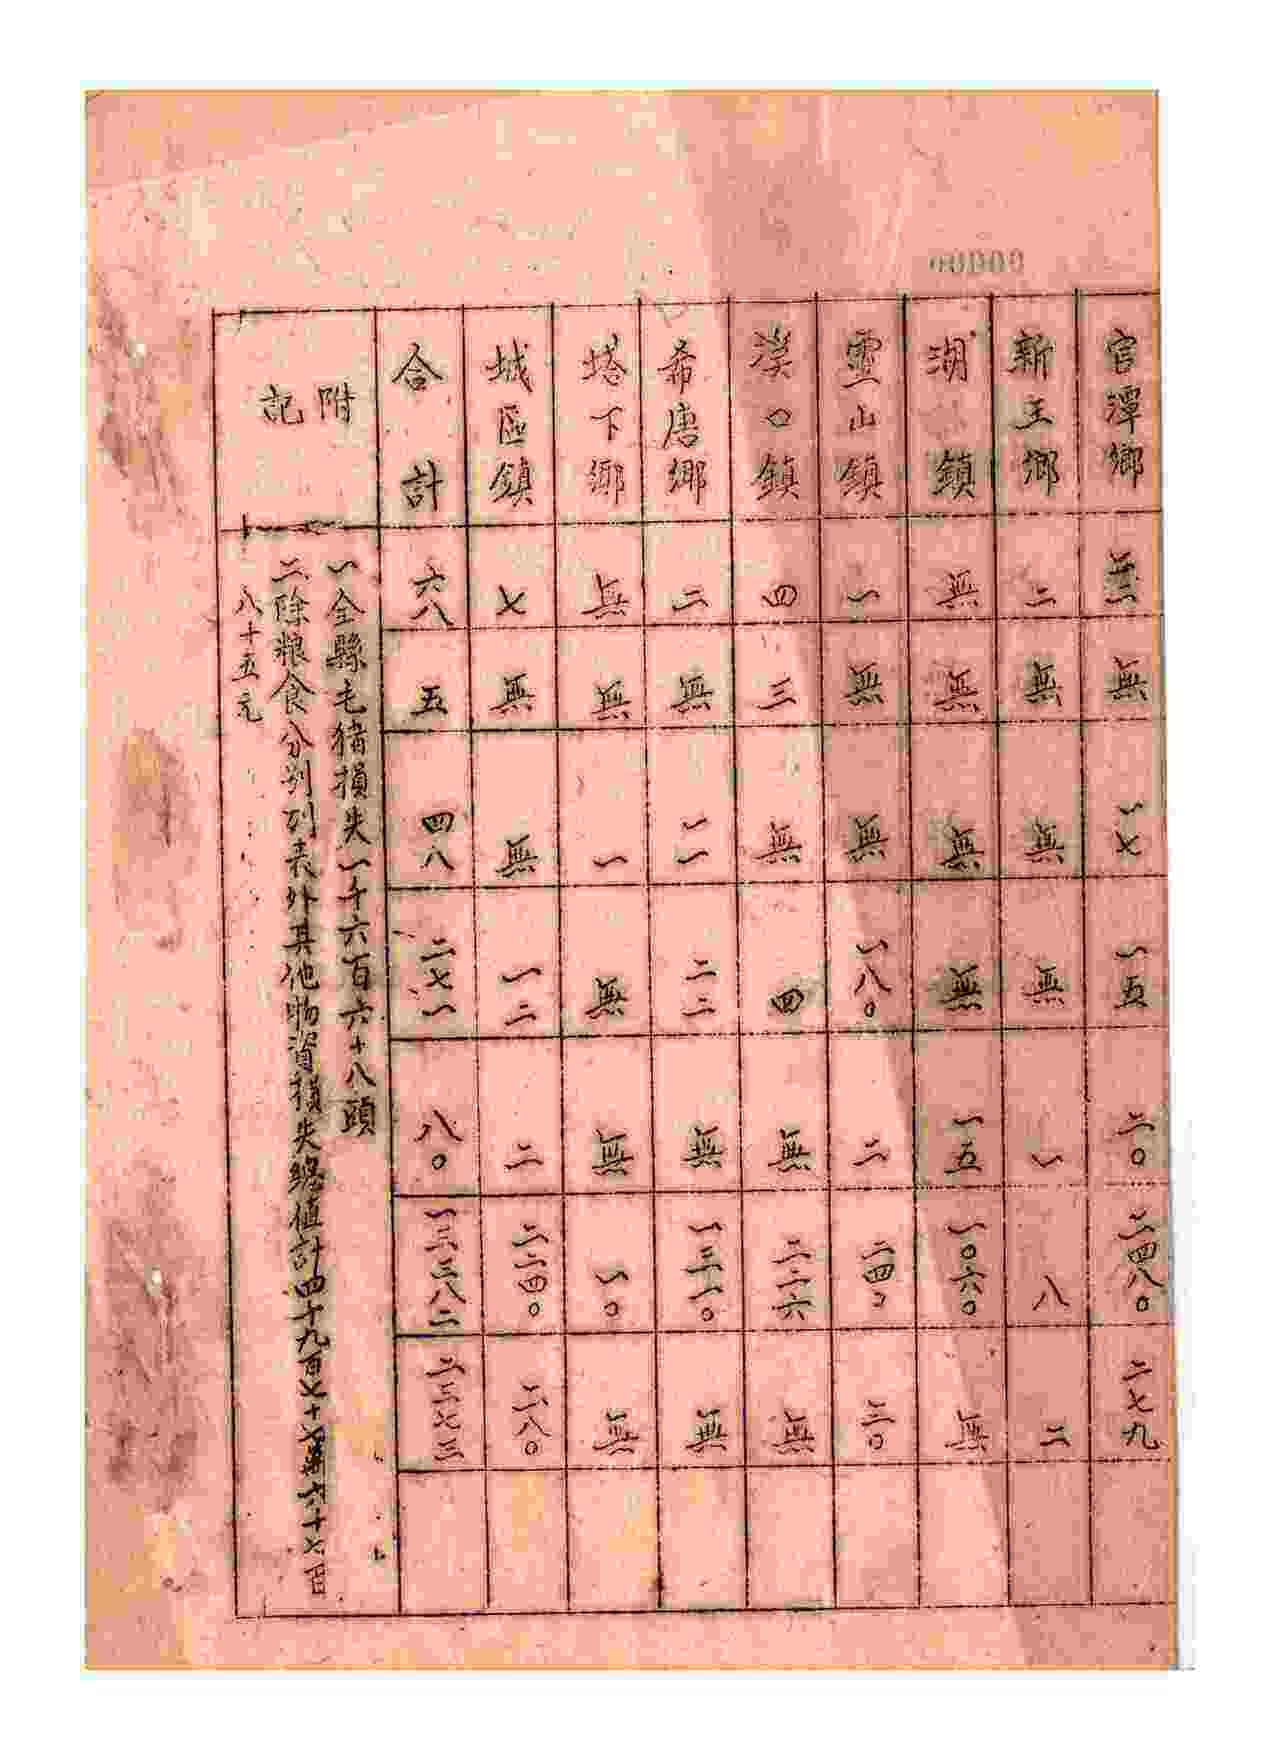 官潭鄉 無 一七 一五 二〇 二四八〇 二七九
新王鄉 二 無 無 無 一 八 二
湖鎮 無 無 無 無 一五 一〇六〇 無
靈山鎮 一 無 無 一八〇 二 二四〇 三〇
溪口鎮 四 三 無 四 無 二二六 無
希唐鄉 二 無 一一 二二 無 一三一〇 無
塔下鄉 無 無 一 無 無 一〇 無
城區鎮 七 無 無 一二 二 二二四〇 二八〇
合計 六八 五 四八 二七一 八〇 一三三八二 二三七三
附記
一全縣毛豬損失一千六百六十八頭
二除粮食分別列表外其他物資損失總值計四千九百七十七萬六千七百
八十五元